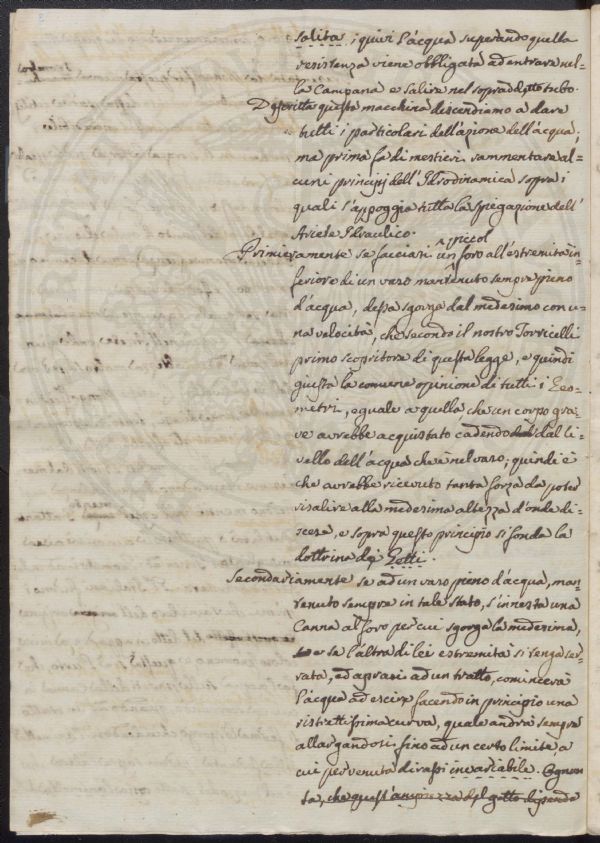 salita; quivi l'acqua superando quella
resistenza viene obbligata ad entrare nel=
la Campana e salire nel sopraddetto tubo.
Descritta questa macchina discendiamo a dare
tutti i particolari dell'azione dell'acqua;
ma prima fa di mestieri rammentare al=
cuni principj dell'Idrodinamica sopra i
quali s'appoggia tutta la spiegazione dell'
Ariete Idraulico.
Primieramente se facciasi un piccol foro all'estremità in=
feriore di un vaso mantenuto sempre pieno
d'acqua, dessa sgorga dal medesimo con u=
na velocità, che secondo il nostro Torricelli
primo scopritore di questa legge, e quindi
giusta la comune opinione di tutti i Geo=
metri, eguale a quella che un corpo gra=
ve avrebbe acquistato cadendo dal li=
vello dell'acqua che è nel vaso; quindi è
che avrebbe ricevuto tanta forza da poter
risalire alla medesima altezza d'onde di=
scese, e sopra questo principio si fonda la
dottrina de' Getti.
Secondariamente se ad un vaso pieno d'acqua, man=
tenuto sempre in tale stato, s'innesta una
Canna al foro per cui sgorga la medesima,
e se l'altra di lei estremità si tenga ser=
rata, ed aprasi ad un tratto, comincerà
l'acqua ad escire facendo in principio una
ristrettissima curva, quale andrà sempre
allargandosi, fino ad un certo limite a
cui pervenuta dirassi invariabile. Ognun
sa, che quest'ampiezza del getto dipende